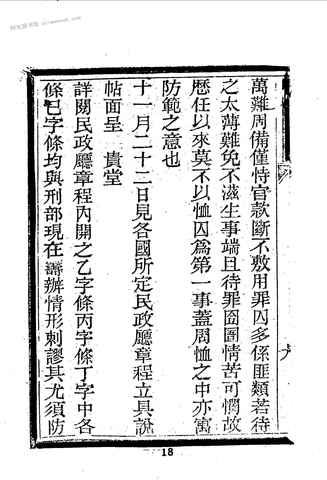 萬難周備僅恃官款斷不敷用罪囚多係匪類若待
之太薄難免不滋生事端且待罪囹圄情苦可憫故
歷任以來莫不以恤囚爲第一事蓋周恤之中亦寓
防範之意也
十一月二十二日見各國所定民政廳章程立具說
帖面呈 貴堂
詳關民政廳章程內開之乙字條丙字條丁字中各
條已字條均與刑部現在籌辦情形剌謬其尤須防
18